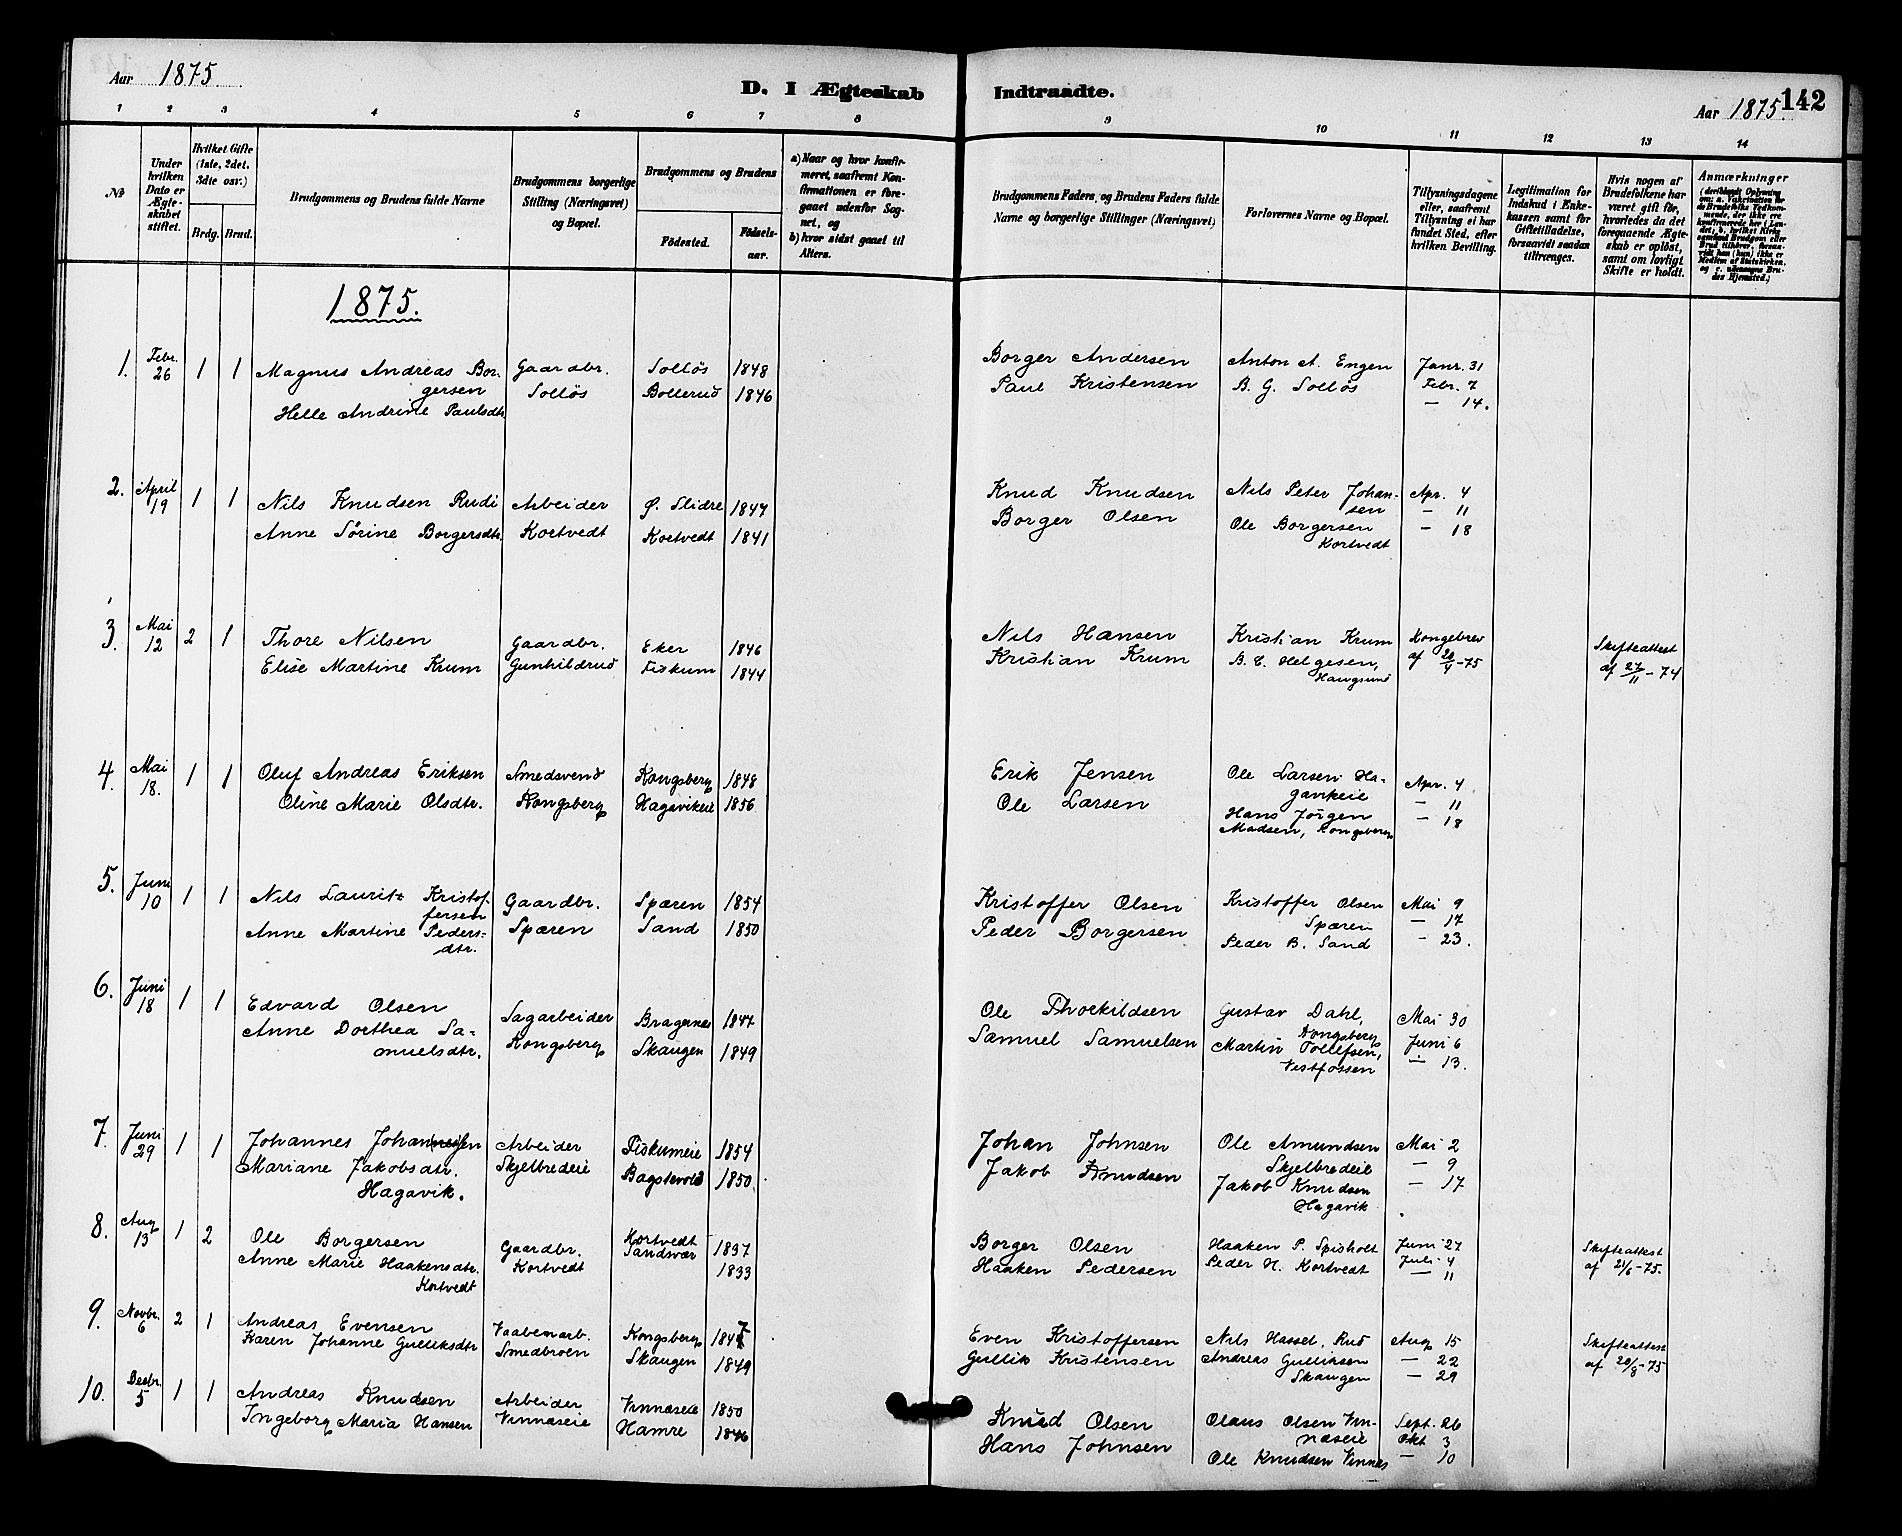 Aar 1875
D. I Ægteskab Indtraadte.
Aar 1875. 142
1 2 3 4 5 6 7 8 9 10 11 12 13 14
№
Under hvilken Dato er Ægteskabet stiftet.
Hvilket Gifte (1ste, 2det, 3die osv.)
Brdg. Brud.
Brudgommens og Brudens fulde Navne
Brudgommens borgerlige Stilling (Næringsvei) og Bopæl.
Brudgommens og Brudens
Fødested. Fødsels-aar.
a) Naar og hvor konfirmeret, saafremt Konfirmationen er foregaaet udenfor Sognet, og
b) hvor sidst gaaet til Alters.
Brudgommens Faders, og Brudens Faders fulde Navne og borgerlige Stillinger (Næringsvei)
Forlovernes Navne og Bopæl.
Tillysningsdagene eller, saafremt Tillysning ei har fundet Sted, efter hvilken Bevilling.
Legitimation for Indskud i Enkekassen samt for Giftetilladelse, forsaavidt saadan tiltrænges.
Hvis nogen af Brudefolkene har været gift før, hvorledes da det foregaaende Ægteskab er opløst, samt om lovligt Skifte er holdt.
Anmærkninger
1875.
1. Febr. 26 1 1 Magnus Andreas Borgersen Gaardbr. Solløs 1848 Borger Andersen Anton A. Engen Janr. 31
Helle Andrine Paulsdtr. Solløs Bollerud 1846 Paul Kristensen B. G. Solløs Febr. 7
— 14.
2. April 19 1 1 Nils Knudsen Rudi Arbeider Ø. Slidre 1847 Knud Knudsen Nils Peter Johansen Apr. 4
— 11
Anne Sørine Borgersdtr. Kortvedt Kortvedt 1841 Borger Olsen Ole Borgersen Kortvedt — 18
3. Mai 12 2 1 Thore Nilsen Gaardbr. Eker 1846 Nils Hansen Kristian Krum Kongebrev Skifteattest
Elise Martine Krum Gunhildrud Fiskum 1844 Kristian Krum B. E. Helgesen, Haugsund af 20/4-75 af 27/11-74
4. Mai 18. 1 1 Oluf Andreas Eriksen Smedsvend Kongsberg 1848 Erik Jensen Ole Larsen Hagavikeie Apr. 4
— 11
Oline Marie Olsdtr. Kongsberg Hagavikeie 1856 Ole Larsen Hans Jörgen Madsen, Kongsberg — 18
5. Juni 10 1 1 Nils Lauritz Kristoffersen Gaardbr. Spæren 1854 Kristoffer Olsen Kristoffer Olsen Spæren Mai 9
— 17
Anne Martine Pedersdtr. Spæren Sand 1850 Peder Borgersen Peder B. Sand — 23.
6. Juni 18 1 1 Edvard Olsen Sagarbeider Bragernes 1847 Ole Thorkildsen Gustav Dahl, Kongsberg Mai 30
Juni 6
Anne Dorthea Samuelsdtr. Kongsberg Skaugen 1849 Samuel Samuelsen Martin Tollefsen, Vestfossen — 13.
7. Juni 29 1 1 Johannes Johannesen Arbeider Fiskumeie 1854 Johan Johnsen Ole Amundsen Skjelbredeie Mai 2
— 9
Mariane Jakobsdtr. Hagavik. Skjelbredeie Bagstevold 1850. Jakob Knudsen Jakob Knudsen Hagavik — 17
8. Aug 13 1 2 Ole Borgersen Gaardbr. Kortvedt 1837 Borger Olsen Haaken P. Spisholt Juni 27 Skifteattest
Anne Marie Haakensdtr. Kortvedt Kortvedt Sandsvær 1833 Haaken Pedersen Peder H. Kortvedt Juli 4 af 21/6-75.
— 11
9. Novbr. 6 2 1 Andreas Evensen Vaabenarb. Kongsberg 1847 Even Kristoffersen Nils Hassel, Rud Aug 15 Skifteattest
Karen Johanne Gulliksdtr Smedbroen Skaugen 1849 Gullik Kristensen Andreas Gulliksen Skaugen — 22 af 20/8-75
— 29
10. Decbr. 5 1 1 Andreas Knudsen Arbeider Vinnæseie 1850 Knud Olsen Olaus Olsen Vinnæseie Sept. 26
Okt 3
Ingeborg Maria Hansen Vinnæseie Hamre 1846 Hans Johnsen Ole Knudsen Vinnæs — 10